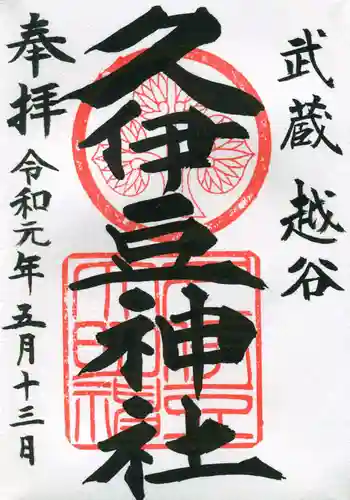 武蔵越谷
久伊豆神社
奉拝
令和元年五月十三日